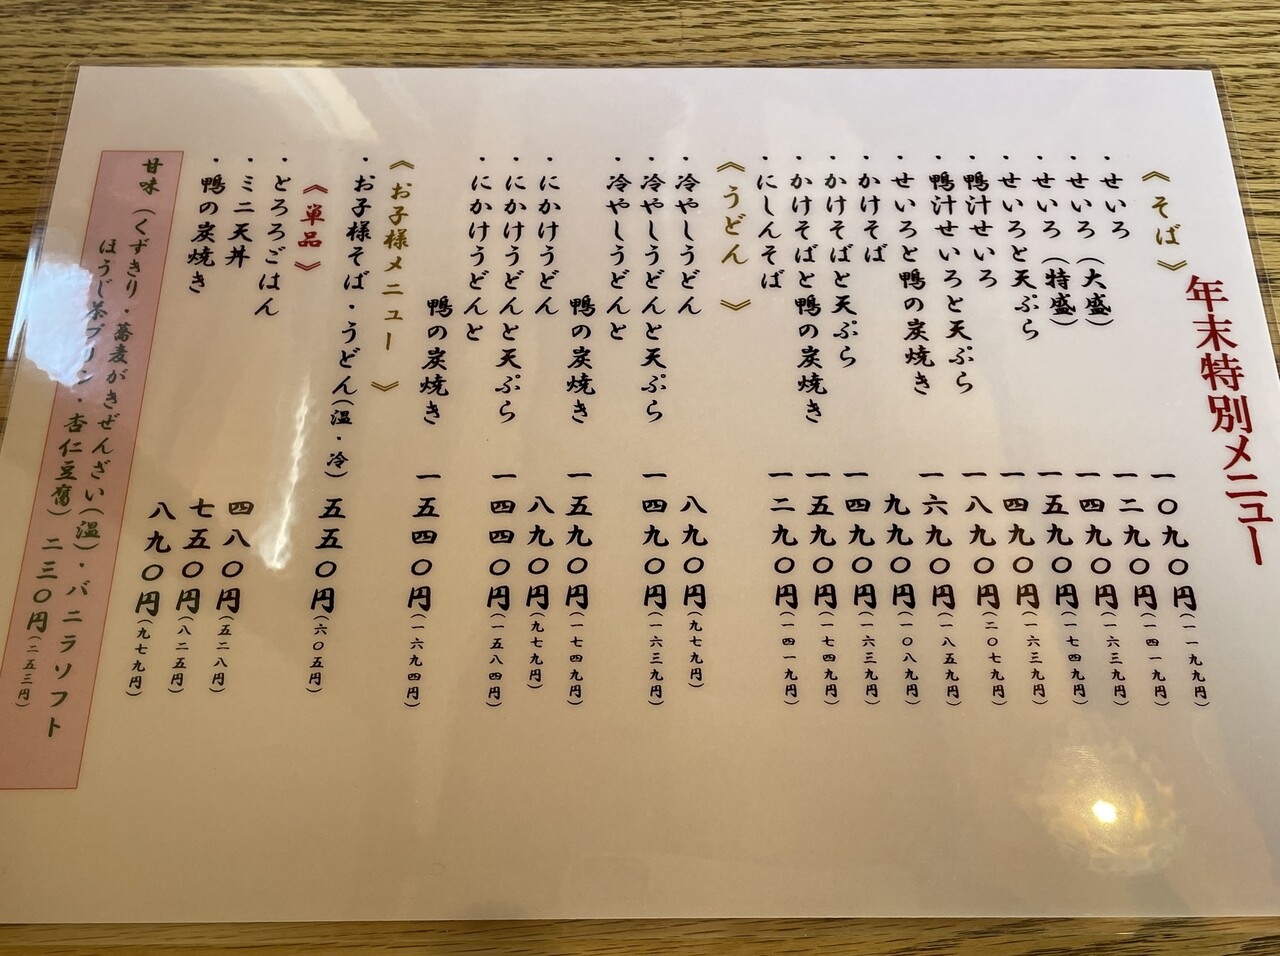 年末特別メニュー
《そば》
・せいろ 一〇九〇円(一一九九円)
・せいろ(大盛) 一二九〇円(一四一九円)
・せいろ(特盛) 一四九〇円(一六三九円)
・せいろと天ぷら 一五九〇円(一七四九円)
・鴨汁せいろ 一四九〇円(一六三九円)
・鴨汁せいろと天ぷら 一八九〇円(二〇七九円)
・せいろと鴨の炭焼き 一六九〇円(一八五九円)
・かけそば 九九〇円(一〇八九円)
・かけそばと天ぷら 一四九〇円(一六三九円)
・かけそばと鴨の炭焼き 一五九〇円(一七四九円)
・にしんそば 一二九〇円(一四一九円)
《うどん》
・冷やしうどん 八九〇円(九七九円)
・冷やしうどんと天ぷら 一四九〇円(一六三九円)
・冷やしうどんと
鴨の炭焼き 一五九〇円(一七四九円)
・にかけうどん 八九〇円(九七九円)
・にかけうどんと天ぷら 一四四〇円(一五八四円)
・にかけうどんと
鴨の炭焼き 一五四〇円(一六九四円)
《お子様メニュー》
・お子様そば・うどん(温・冷) 五五〇円(六〇五円)
《単品》
・とろろごはん 四八〇円(五二八円)
・ミニ天丼 七五〇円(八二五円)
・鴨の炭焼き 八九〇円(九七九円)
甘味(くずきり・蕎麦がきぜんざい(温)・バニラソフト
ほうじ茶プリン・杏仁豆腐)二三〇円(二五三円)